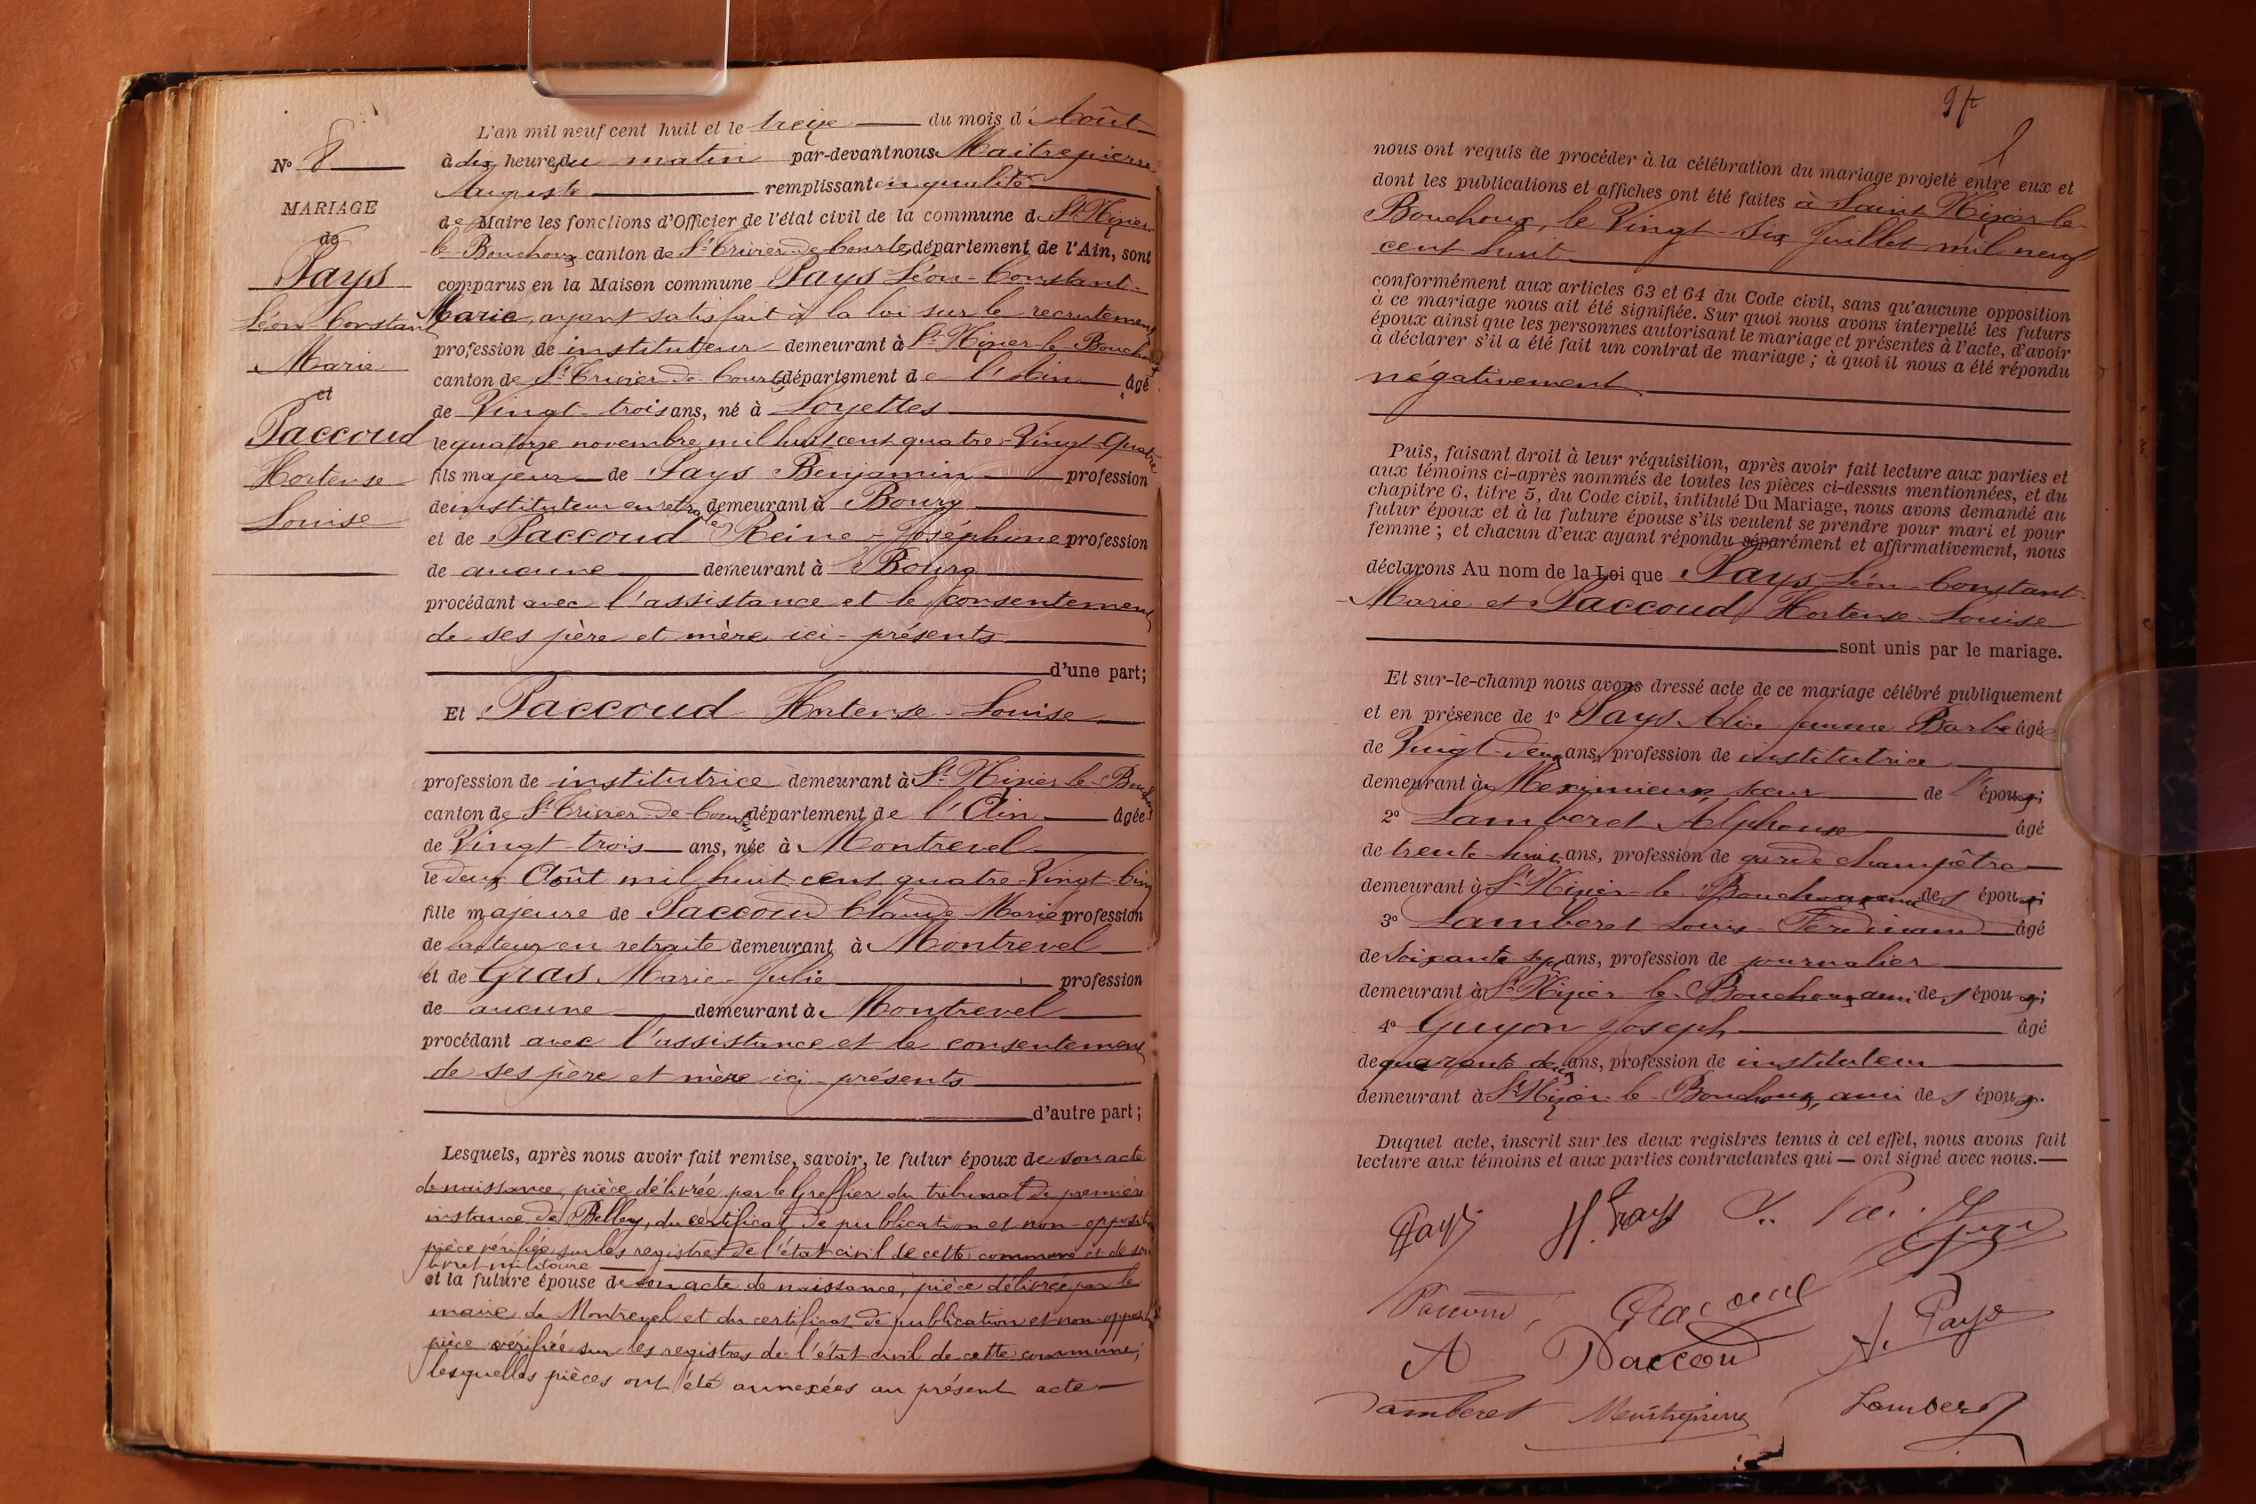 N° 8
MARIAGE
de
Pays
Léon Constant
Marie
et
Paccoud
Hortense
Louise
L'an mil neuf cent huit et le treize du mois d'Août
à dix heures du matin par-devant nous Maitrepierre
Auguste remplissant en qualité
de Maire les fonctions d'Officier de l'état civil de la commune de St Nizier
le Bouchoux canton de St Trivier-de-Courtes, département de l'Ain, sont
comparus en la Maison commune Pays Léon-Constant-
Marie, ayant satisfait à la loi sur le recrutement
profession de instituteur demeurant à St Nizier le Bouchoux
canton de St Trivier de Courtes département de l'Ain âgé
de Vingt-trois ans, né à Loyettes
le quatorze novembre mil huit cent quatre-Vingt-quatre
fils majeur de Pays Benjamin profession
de instituteur en retraite demeurant à Bourg
et de Paccoud Reine-Joséphine profession
de aucune demeurant à Bourg
procédant avec l'assistance et le consentement
de ses père et mère ici-présents
d'une part;
Et Paccoud Hortense-Louise
profession de institutrice demeurant à St Nizier le Bouchoux
canton de St Trivier-de-Courtes département de l'Ain âgée
de Vingt-trois ans, née à Montrevel
le deux Août mil huit cent quatre-Vingt-cinq
fille majeure de Paccoud Claude-Marie profession
de facteur en retraite demeurant à Montrevel
et de Gras Marie-Julie profession
de aucune demeurant à Montrevel
procédant avec l'assistance et le consentement
de ses père et mère ici-présents
d'autre part;
Lesquels, après nous avoir fait remise, savoir, le futur époux de son acte
de naissance, pièce délivrée par le Greffier du tribunal de première
instance de Belley, du certificat de publication et non-opposition
pièce vérifiée sur les registres de l'état civil de cette commune et de son
livret militaire
et la future épouse de son acte de naissance, pièce délivrée par le
maire de Montrevel et du certificat de publication et non-opposition
pièce vérifiée sur les registres de l'état-civil de cette commune;
lesquelles pièces ont été annexées au présent acte
nous ont requis de procéder à la célébration du mariage projeté entre eux et
dont les publications et affiches ont été faites à Saint Nizier-le-
Bouchoux, le Vingt-Six Juillet mil neuf
cent huit
conformément aux articles 63 et 64 du Code civil, sans qu'aucune opposition
à ce mariage nous ait été signifiée. Sur quoi nous avons interpellé les futurs
époux ainsi que les personnes autorisant le mariage et présentes à l'acte, d'avoir
à déclarer s'il a été fait un contrat de mariage ; à quoi il nous a été répondu
négativement
Puis, faisant droit à leur réquisition, après avoir fait lecture aux parties et
aux témoins ci-après nommés de toutes les pièces ci-dessus mentionnées, et du
chapitre 6, titre 5, du Code civil, intitulé Du Mariage, nous avons demandé au
futur époux et à la future épouse s'ils veulent se prendre pour mari et pour
femme ; et chacun d'eux ayant répondu séparément et affirmativement, nous
déclarons Au nom de la Loi que Pays Léon-Constant-
Marie et Paccoud Hortense-Louise
sont unis par le mariage.
Et sur-le-champ nous avons dressé acte de ce mariage célébré publiquement
et en présence de 1° Pays Alice femme Barbe âgé
de Vingt-deux ans, profession de institutrice
demeurant à Meximieux, sœur de l'époux;
2° Lamberet Alphonse âgé
de trente-huit ans, profession de garde champêtre
demeurant à St Nizier-le-Bouchoux, ami des époux;
3° Lamberet Louis-Ferdinand âgé
de Soixante sept ans, profession de journalier
demeurant à St Nizier le Bouchoux, ami des époux;
4° Guyon Joseph âgé
de quarante deux ans, profession de instituteur
demeurant à St Nizier-le-Bouchoux, ami des époux.
Duquel acte, inscrit sur les deux registres tenus à cet effet, nous avons fait
lecture aux témoins et aux parties contractantes qui — ont signé avec nous.—
Pays H. Pays
Paccoud
Paccoud A. Pays
Lamberet Maitrepierre Lamberet